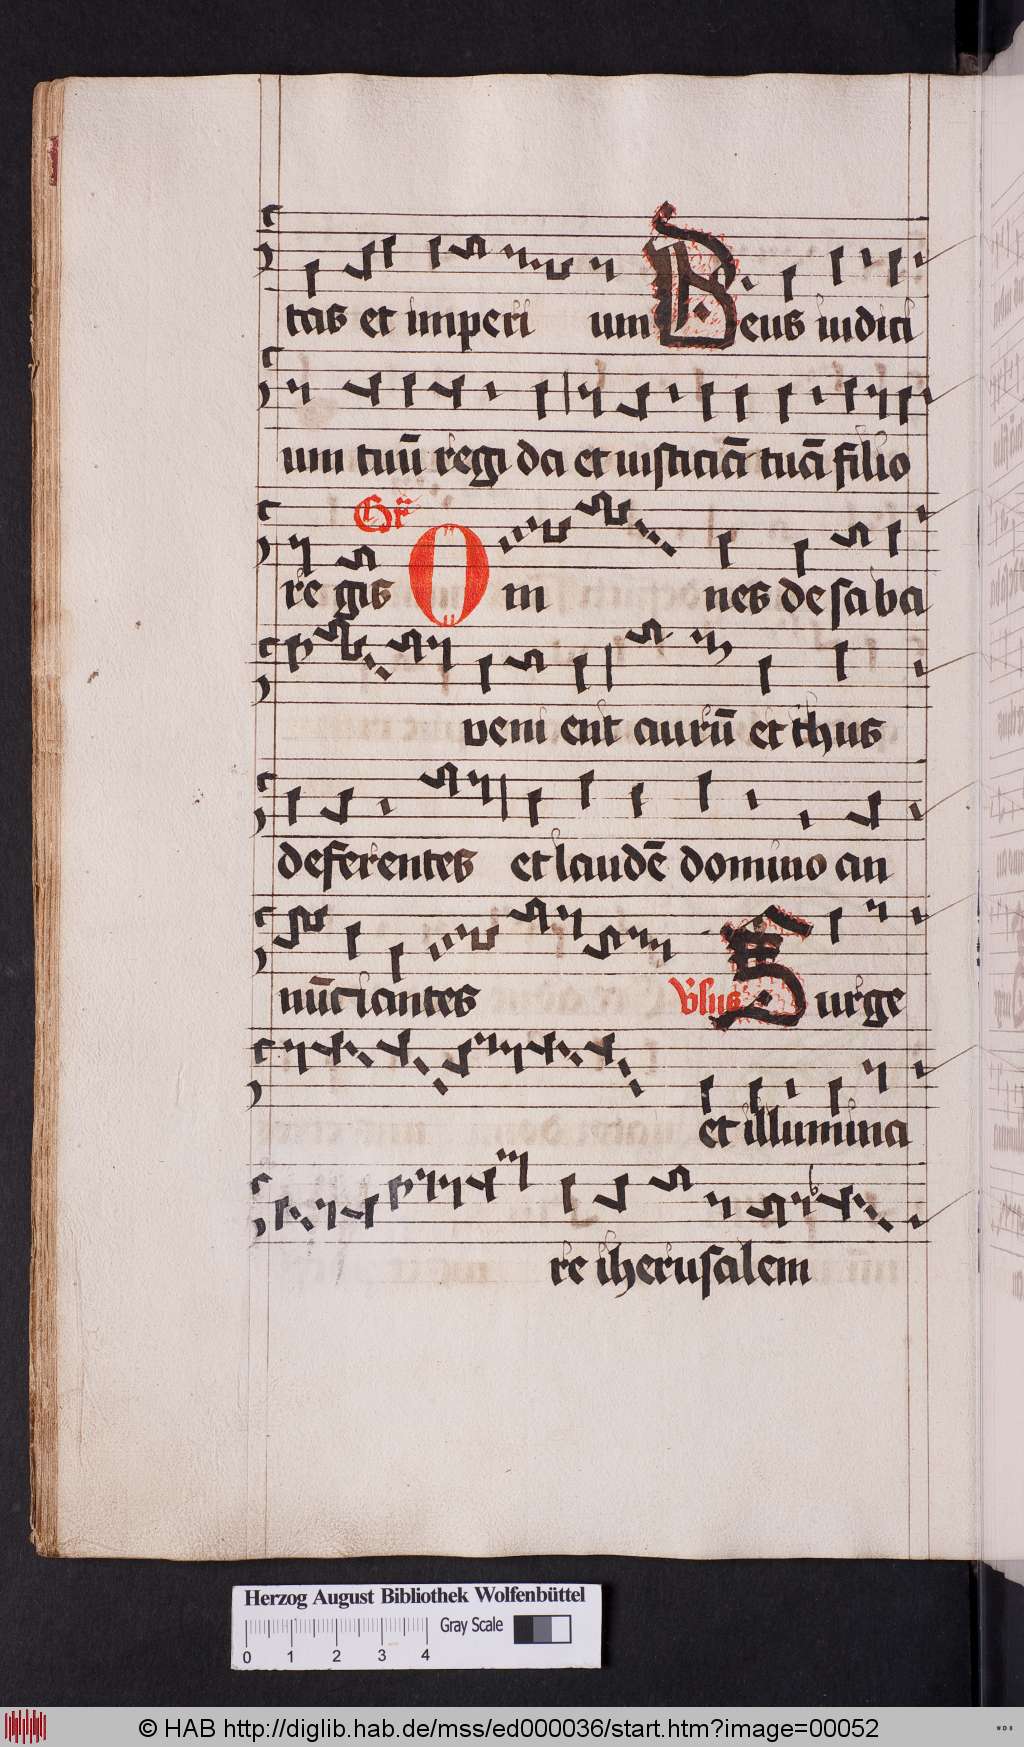 tas et imperi um Deus iudici
um tuū regi da et iusticiā tuā filio
Gr̄
regis Om nes de saba
veni ent aurū et thus
deferentes et laudē domino an
nūciantes v̄sus Surge
et illumina
re iherusalem
Herzog August Bibliothek Wolfenbüttel
Gray Scale
0 1 2 3 4
© HAB http://diglib.hab.de/mss/ed000036/start.htm?image=00052